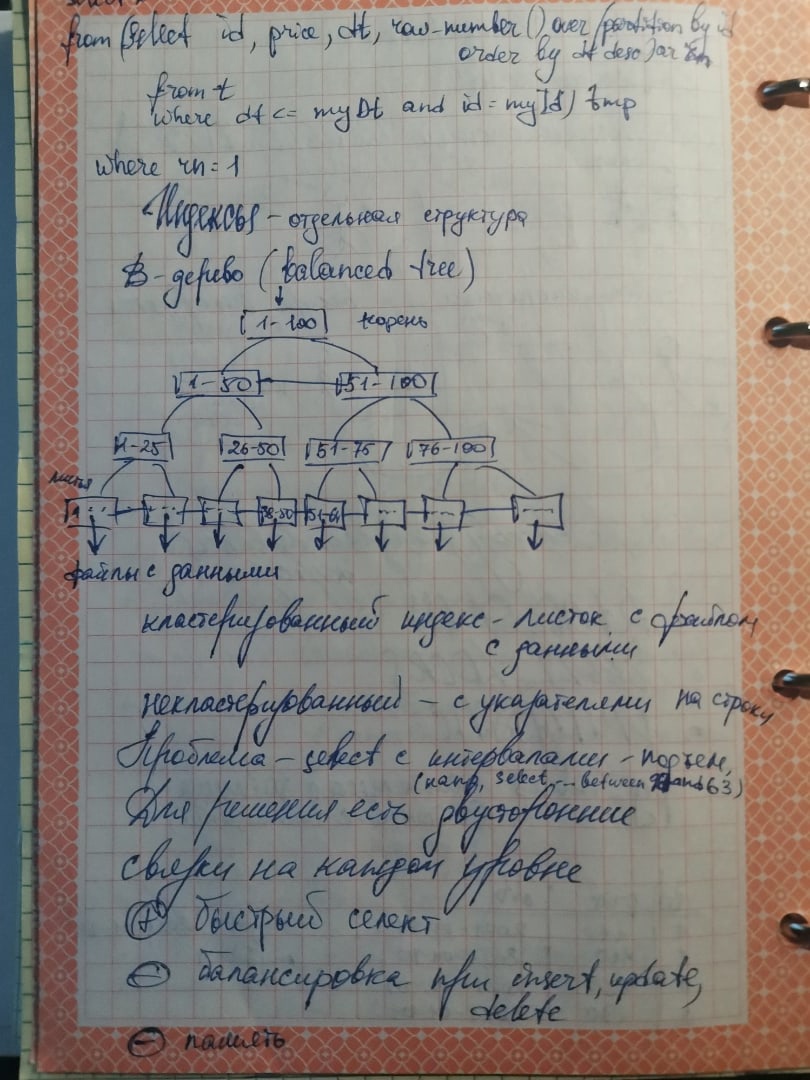 from (select id, price, dt, row-number() over (partition by id
order by dt desc) as rn
from t
where dt <= myDt and id = myId) tmp
where rn = 1
Индексы - отдельная структура
B-дерево (balanced tree)
1-100 корень
1-50 51-100
1-25 26-50 51-75 76-100
листья
1 -- --- --- 38-50 51-61 --- --- ---
файлы с данными
кластеризованный индекс - листок с файлом
с данными
некластеризованный - с указателями на строку
Проблема - select с интервалами - подъем,
(напр, select ... between and 63)
Для решения есть двусторонние
связки на каждом уровне
+ быстрый селект
- балансировка при insert, update,
delete
- память